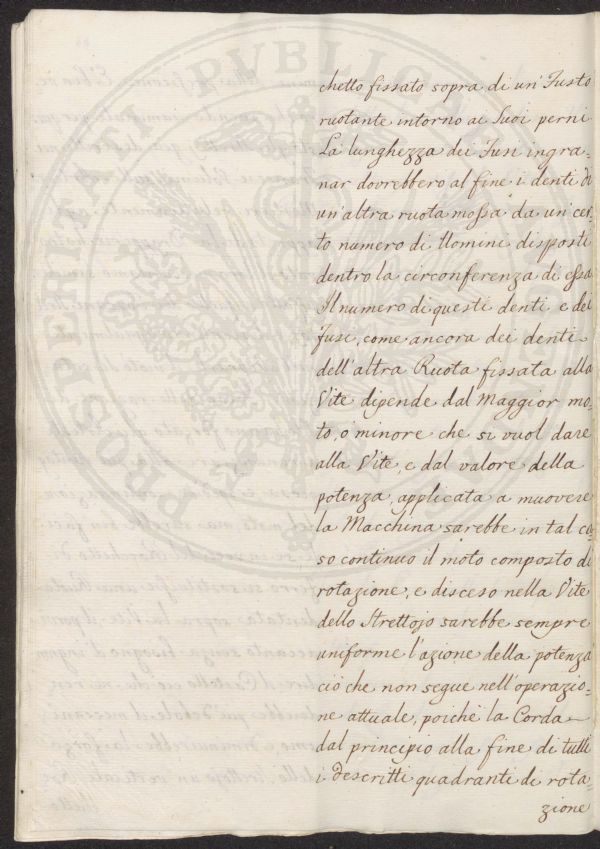 chetto fissato sopra di un' Fusto
ruotante intorno ai Suoi perni
La lunghezza dei Fusi ingra=
nar dovrebbero al fine i denti di
un'altra ruota mossa da un'cer=
to numero di Uomini disposti
dentro la circonferenza di essa
Il numero di questi denti e dei
Fusi, come ancora dei denti
dell'altra Ruota fissata alla
Vite dipende dal Maggior mo=
to, o' minore che si vuol dare
alla Vite, e dal valore della
potenza applicata a muovere
la Macchina sarebbe in tal ca=
so continuo il moto composto di
rotazione, e disceso nella Vite
dello Strettojo sarebbe sempre
uniforme l'azione della potenza
ciò che non segue nell'operazio=
ne attuale, poichè la Corda
dal principio alla fine di tutti
i descritti quadranti di rota=
zione
PROSPERITATI PUBLICAE